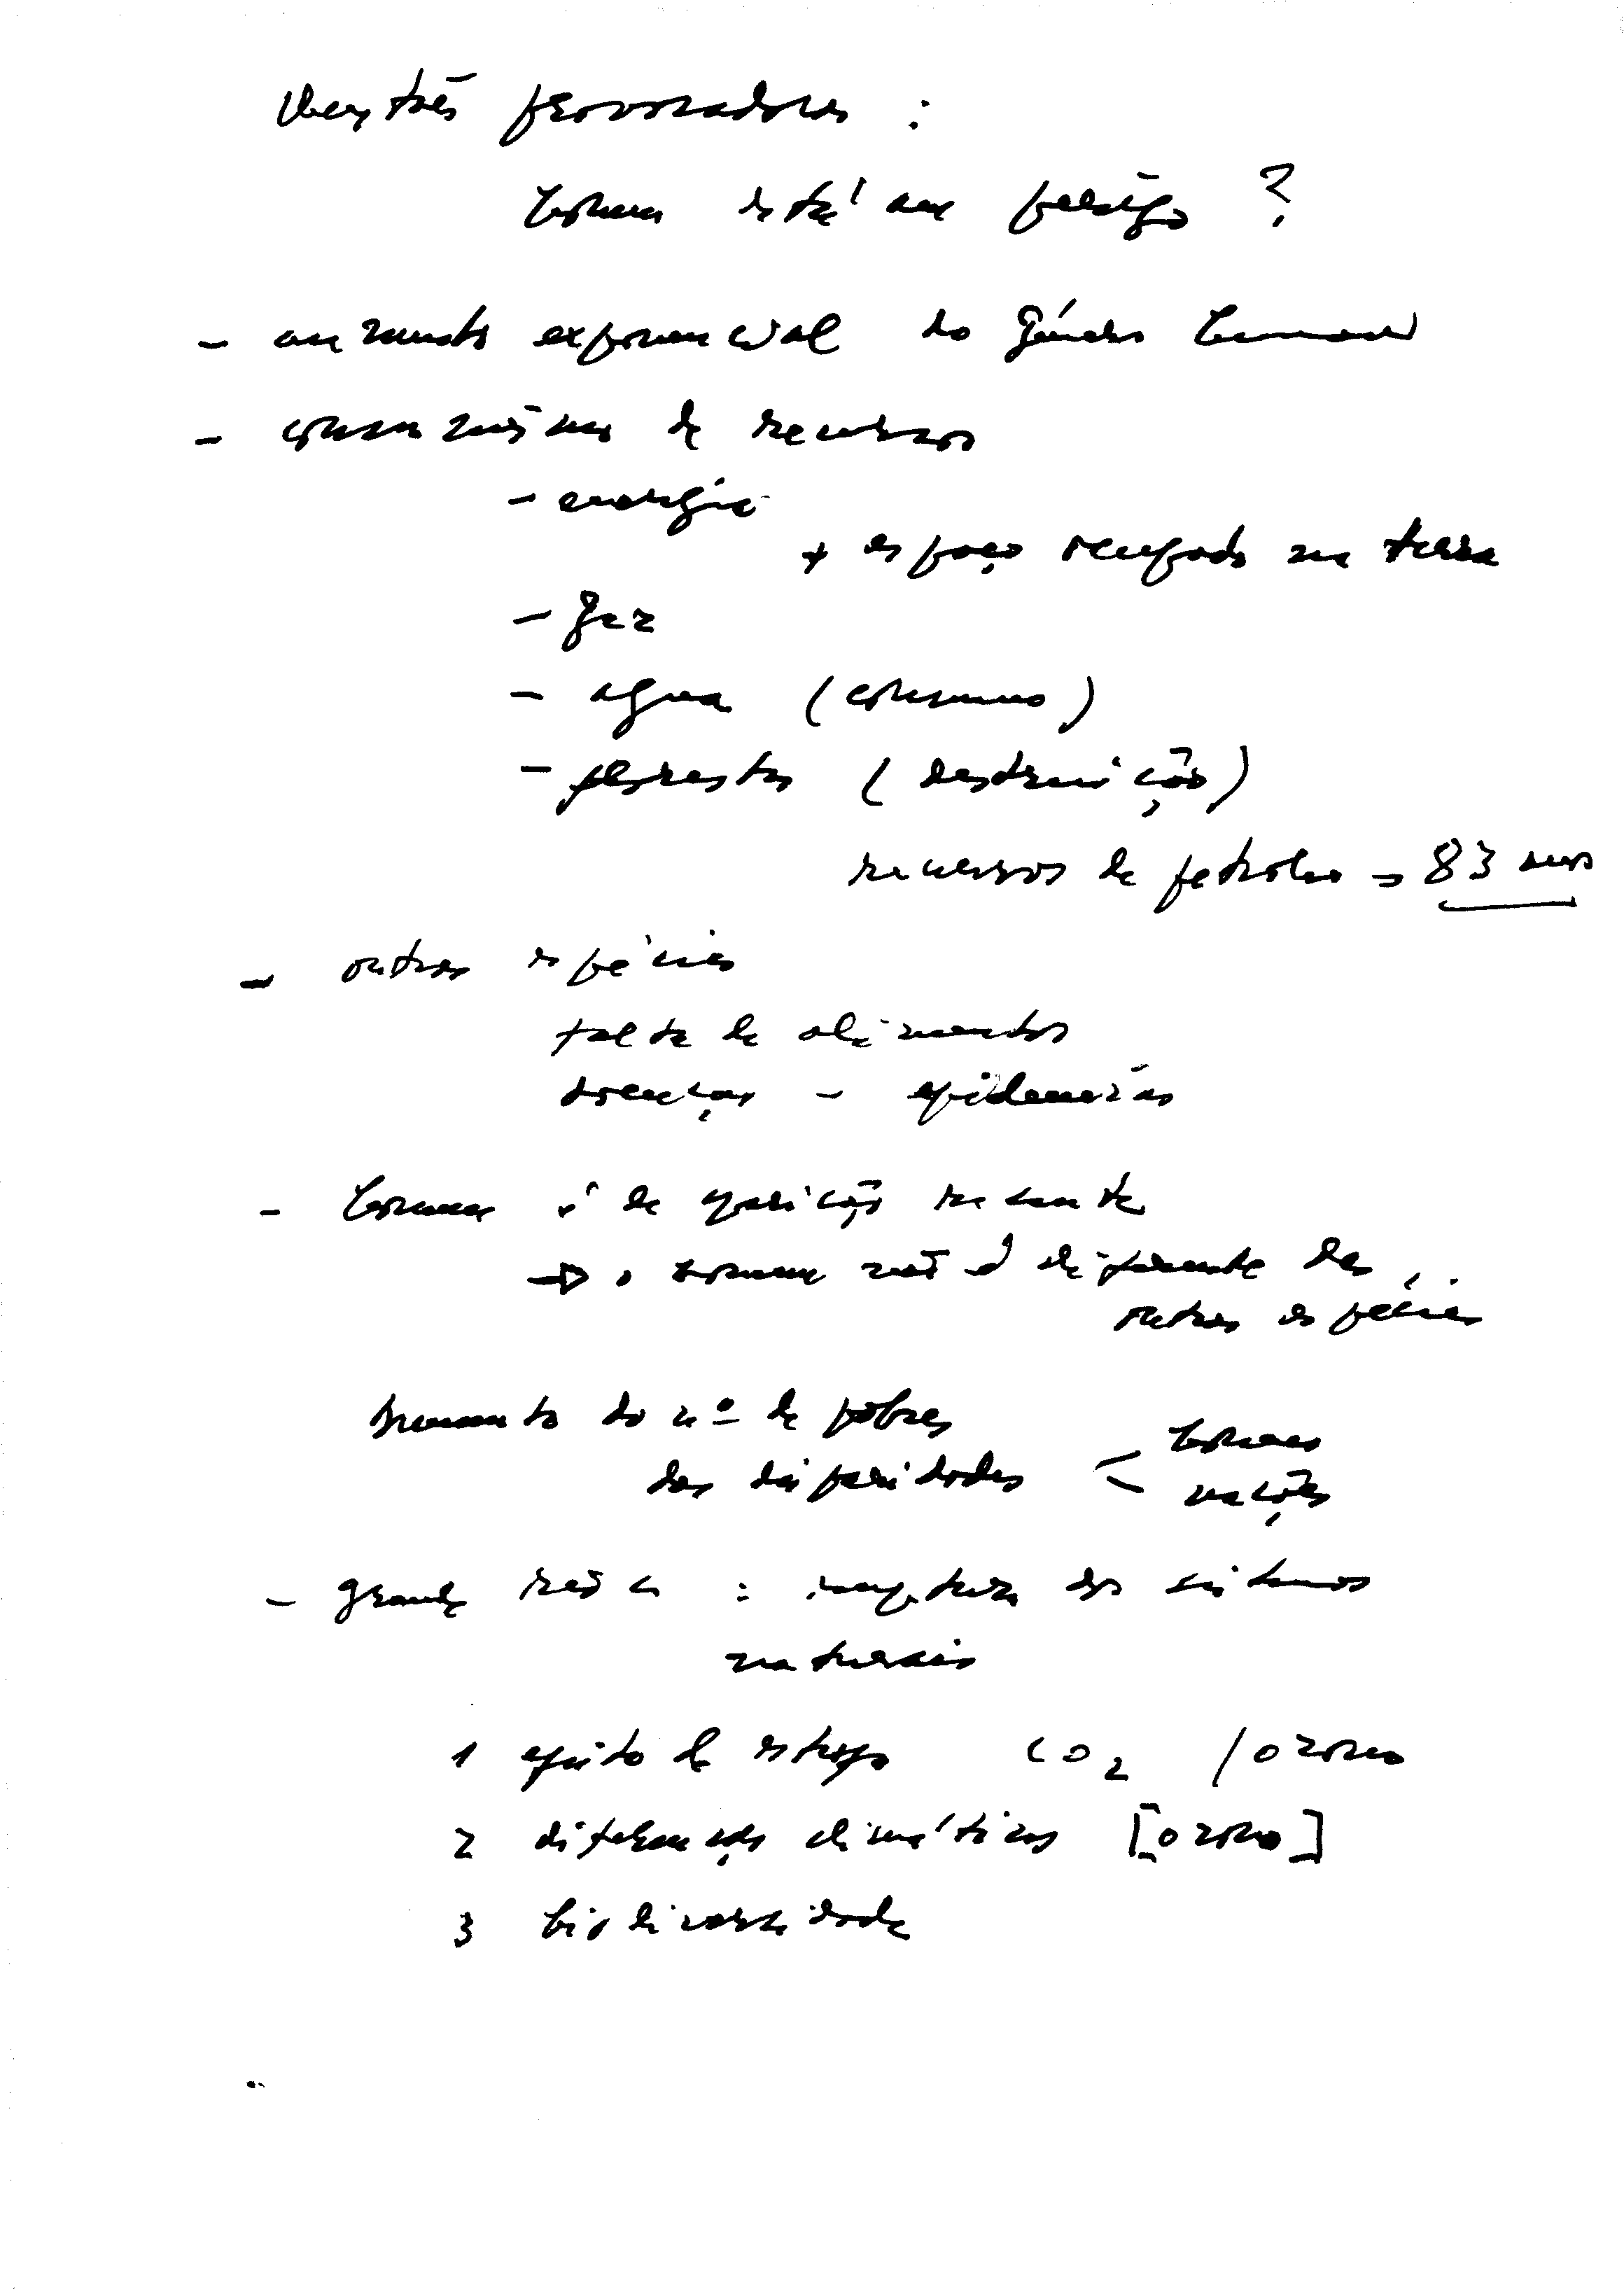 Questões provocadoras :
homem está em perigo ?
- aumento exponencial do género humano
- consumismo de recursos
- energia
+ espaço ocupado na terra
- gaz
- agua (consumo)
- florestas (destruição)
recursos de petroleo = 83 anos
- outras espécies
falta de alimentos
doenças - epidemias
- homem é de aparição recente
→ o homem não é diferente das
outras espécies
aumento do nº de pobres
das disparidades < homens
nações
- grande : ruptura dos sistemas
naturais
1 efeito de estufa CO2 / ozono
2 diferenças climáticas [ozono]
3 biodiversidade